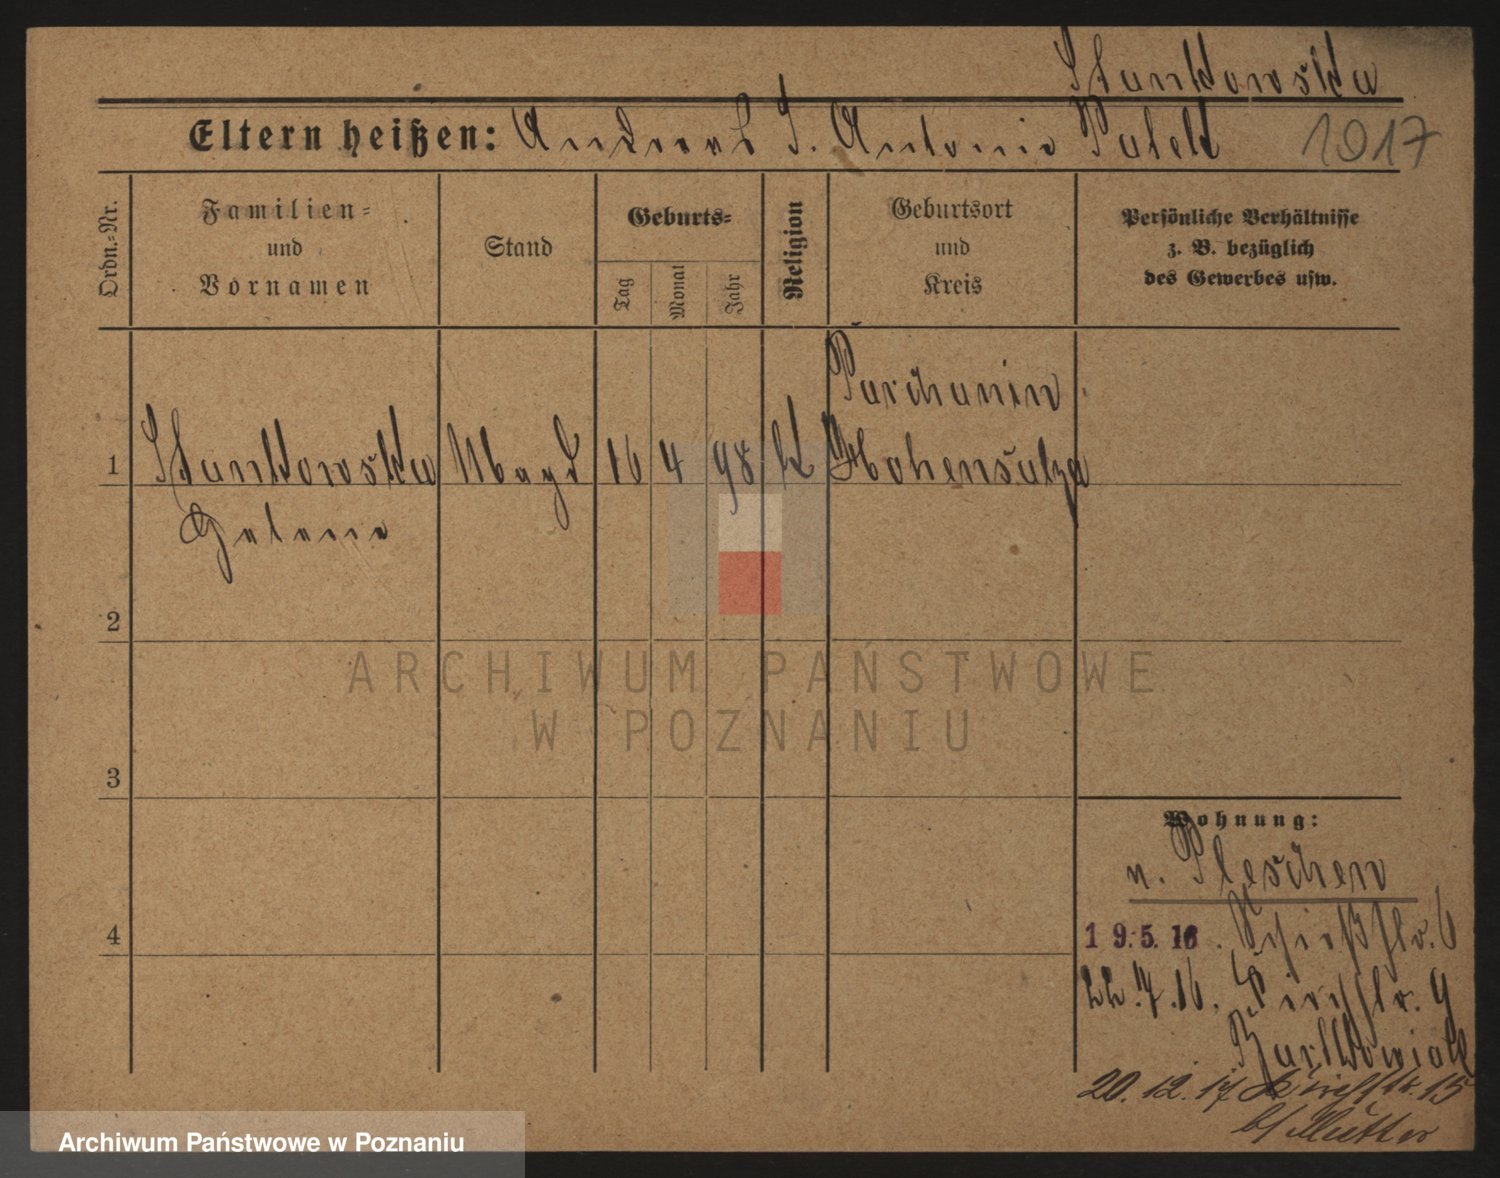 Stankowska
Eltern heißen: Andreas S. Antonie Palek 1917
Ordn.-Nr.
Familien-
und
Vornamen
Stand
Geburts-
Tag
Monat
Jahr
Religion
Geburtsort
und
Kreis
Persönliche Verhältnisse
z. B. bezüglich
des Gewerbes usw.
Parchanin
1 Stankowska Magd 16 4 98 k Hohensalza
Helene
2
3
4
Wohnung:
n. Pleschen
19.5.16. Schießstr. 6
22.7.16. Kirchstr. 9
20.12.17 Kirchstr. 15
b/ Mutter
ARCHIWUM PAŃSTWOWE
W POZNANIU
Archiwum Państwowe w Poznaniu